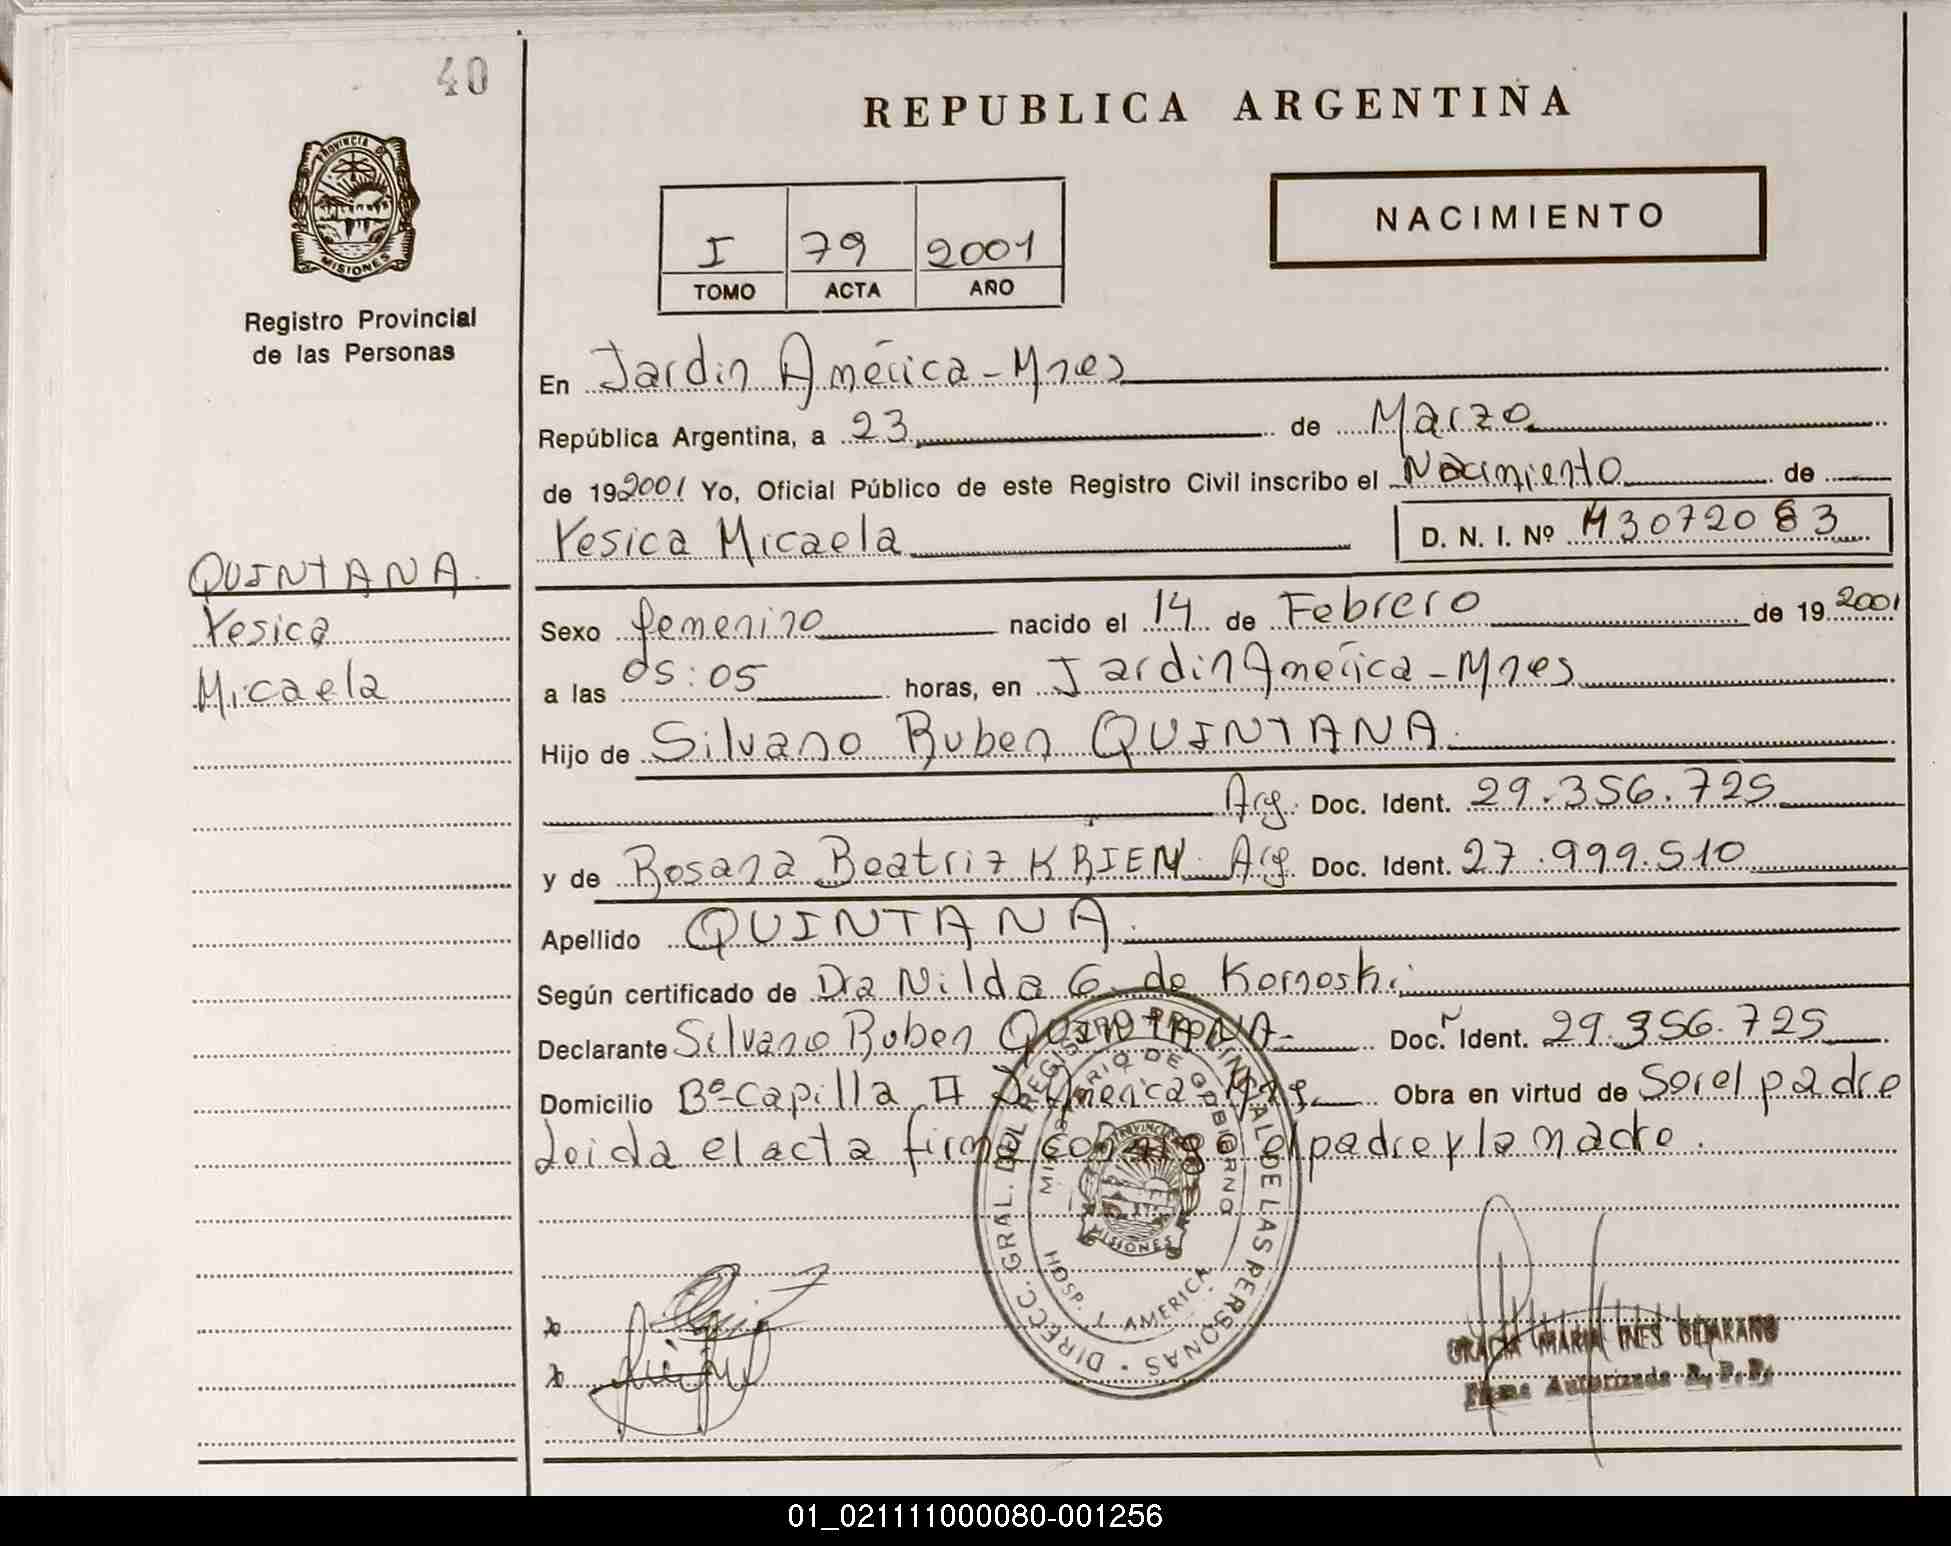 40
REPUBLICA ARGENTINA
PROVINCIA DE
MISIONES
Registro Provincial
de las Personas
I 79 2001
TOMO ACTA AÑO
NACIMIENTO
En Jardin América - Mnes
República Argentina, a 23 de Marzo
de 192001 Yo, Oficial Público de este Registro Civil inscribo el Nacimiento de
Yesica Micaela D. N. I. Nº 43072083
QUINTANA.
Yesica
Micaela
Sexo femenino nacido el 14 de Febrero de 19 2001
a las 05:05 horas, en Jardin América - Mnes
Hijo de Silvano Ruben QUINTANA.
Arg. Doc. Ident. 29.356.725
y de Rosana Beatriz KRIEN. Arg Doc. Ident. 27.999.510
Apellido QUINTANA.
Según certificado de Dra Nilda G. de Kornoski
Declarante Silvano Ruben QUINTANA Doc. Ident. 29.356.725
Domicilio Bº Capilla II J. América Mnes. Obra en virtud de Ser el padre
Leida el acta firma conmigo el padre y la madre.
DIRECC. GRAL. DEL REGISTRO PROVINCIAL DE LAS PERSONAS
MINISTERIO DE GOBIERNO
PROVINCIA
MISIONES
HOSP. J. AMERICA
GRACIA MARIA INES
Firma Autorizada R. P. P.
01_021111000080-001256